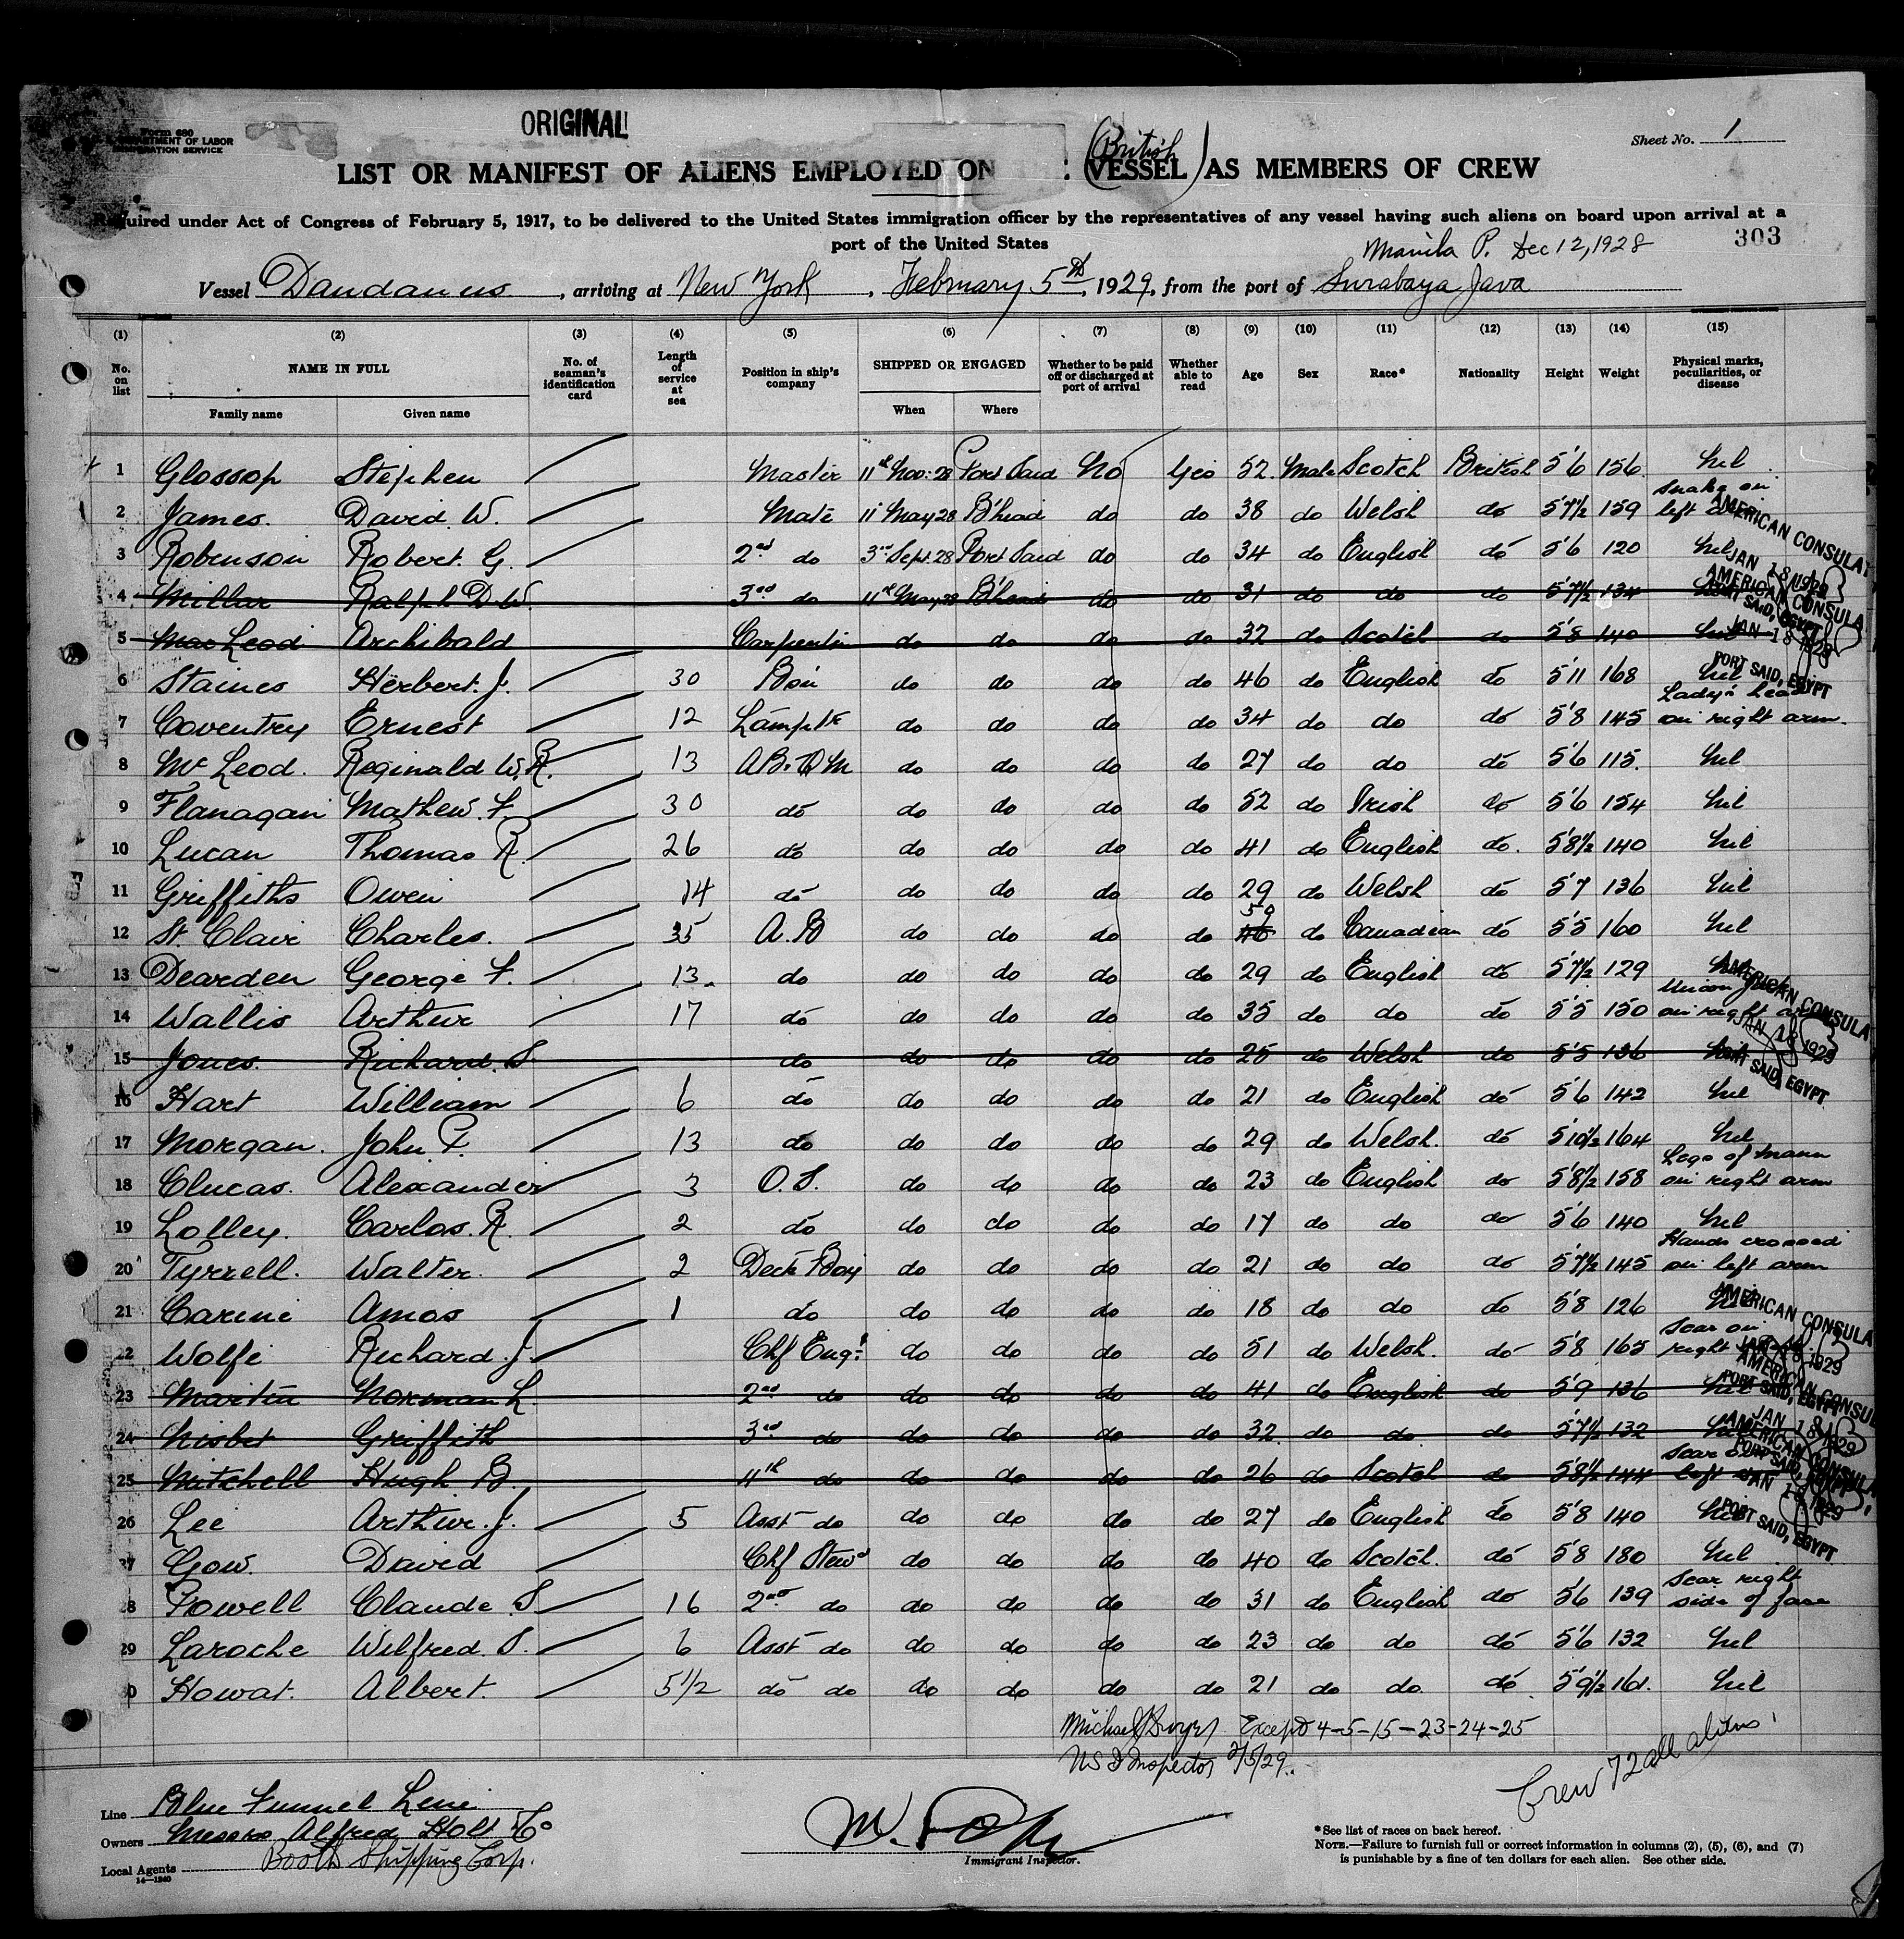 Form 680
DEPARTMENT OF LABOR
IMMIGRATION SERVICE
ORIGINAL
Sheet No. 1
(British)
LIST OR MANIFEST OF ALIENS EMPLOYED ON VESSEL AS MEMBERS OF CREW
Required under Act of Congress of February 5, 1917, to be delivered to the United States immigration officer by the representatives of any vessel having such aliens on board upon arrival at a
port of the United States
303
Manila P. Dec 12, 1928
Vessel Dardanus, arriving at New York, February 5th, 1929, from the port of Surabaya Java
(1) (2) (3) (4) (5) (6) (7) (8) (9) (10) (11) (12) (13) (14) (15)
No. on list NAME IN FULL No. of seaman's identification card Length of service at sea Position in ship's company SHIPPED OR ENGAGED Whether to be paid off or discharged at port of arrival Whether able to read Age Sex Race* Nationality Height Weight Physical marks, peculiarities, or disease
Family name Given name When Where
1 Glossop Stephen Master 11th Nov: 28 Port Said No Yes 52 Male Scotch British 5'6 156 Nil
2 James. David W. Mate 11 May 28 B'head do do 38 do Welsh do 5'7½ 159 Snake on left
3 Robinson Robert G. 2nd do 3rd Sept. 28 Port Said do do 34 do English do 5'6 120 Nil
4 Millar Ralph D W. 3rd do 11th May 28 B'head do do 31 do do do 5'7½ 134
5 MacLeod Archibald Carpenter do do do do 32 do Scotch do 5'8 140 Nil
6 Staines Herbert. J. 30 Bos'n do do do do 46 do English do 5'11 168 Nil
7 Coventry Ernest 12 Lamptr do do do do 34 do do do 5'8 145 Lady's head on right arm.
8 McLeod. Reginald W. R. 13 AB. QM do do do do 27 do do do 5'6 115. Nil
9 Flanagan Mathew. F. 30 do do do do do 52 do Irish do 5'6 154 Nil
10 Lucan Thomas R. 26 do do do do do 41 do English do. 5'8½ 140 Nil
11 Griffiths Owen 14 do do do do do 29 do Welsh do 5'7 136 Nil
12 St. Clair Charles. 35 A.B do do do do 59 46 do Canadian do 5'5 160 Nil
13 Dearden George F. 13. do do do do do 29 do English do 5'7½ 129 Nil
14 Wallis Arthur 17 do do do do do 35 do do do 5'5 150 Union Jack on right arm
15 Jones. Richard. S do do do do do 25 do Welsh do 5'5 136 Nil
16 Hart William 6 do do do do do 21 do English do 5'6 142 Nil
17 Morgan. John. P. 13 do do do do do 29 do Welsh. do 5'10½ 164 Nil
18 Clucas. Alexander 3 O.S. do do do do 23 do English do 5'8½ 158 Legs of Mann on right arm
19 Lolley. Carlos. R. 2 do do do do do 17 do do do 5'6 140 Nil
20 Tyrrell. Walter. 2 Deck Boy do do do do 21 do do do 5'7½ 145 Hands crossed on left arm
21 Carine Amos 1 do do do do do 18 do do do 5'8 126 Nil
22 Wolfe Richard. J. Chf Engr. do do do do 51 do Welsh. do 5'8 165 Scar on right
23 Martin Norman L. 2nd do do do do do 41 do English do 5'9 136 Nil
24 Nisbet Griffith 3rd do do do do do 32 do do do 5'7½ 132 Nil
25 Mitchell Hugh B. 4th do do do do do 26 do Scotch do 5'8½ 144 Scar on left
26 Lee Arthur. J. 5 Asst do do do do do 27 do English do 5'8 140 Nil
27 Gow. David Chf Stewd do do do do 40 do Scotch. do 5'8 180 Nil
28 Powell Claude S 16 2nd do do do do do 31 do English do 5'6 139 Scar right side of face
29 Laroche Wilfred. S. 6 Asst do do do do do 23 do do do 5'6 132 Nil
30 Howat. Albert. 5½ do do do do do do 21 do do. do 5'9½ 161. Nil
AMERICAN CONSULA
JAN 18 1929
PORT SAID, EGYPT
AMERICAN CONSULA
JAN 18 1929
PORT SAID, EGYPT
AMERICAN CONSULA
JAN 18 1929
PORT SAID, EGYPT
AMERICAN CONSULA
JAN 18 1929
PORT SAID, EGYPT
AMERICAN CONSUL
JAN 18 1929
PORT SAID, EGYPT
AMERICAN CONSULA
JAN 18 1929
PORT SAID, EGYPT
Michael Except 4-5-15-23-24-25
US I Inspector 2/5/29.
Crew 72 all aliens.
Line Blue Funnel Line
Owners Messrs Alfred Holt & Co
Local Agents Booth Shipping Corp.
14—1240
Immigrant Inspector.
*See list of races on back hereof.
NOTE.—Failure to furnish full or correct information in columns (2), (5), (6), and (7)
is punishable by a fine of ten dollars for each alien. See other side.